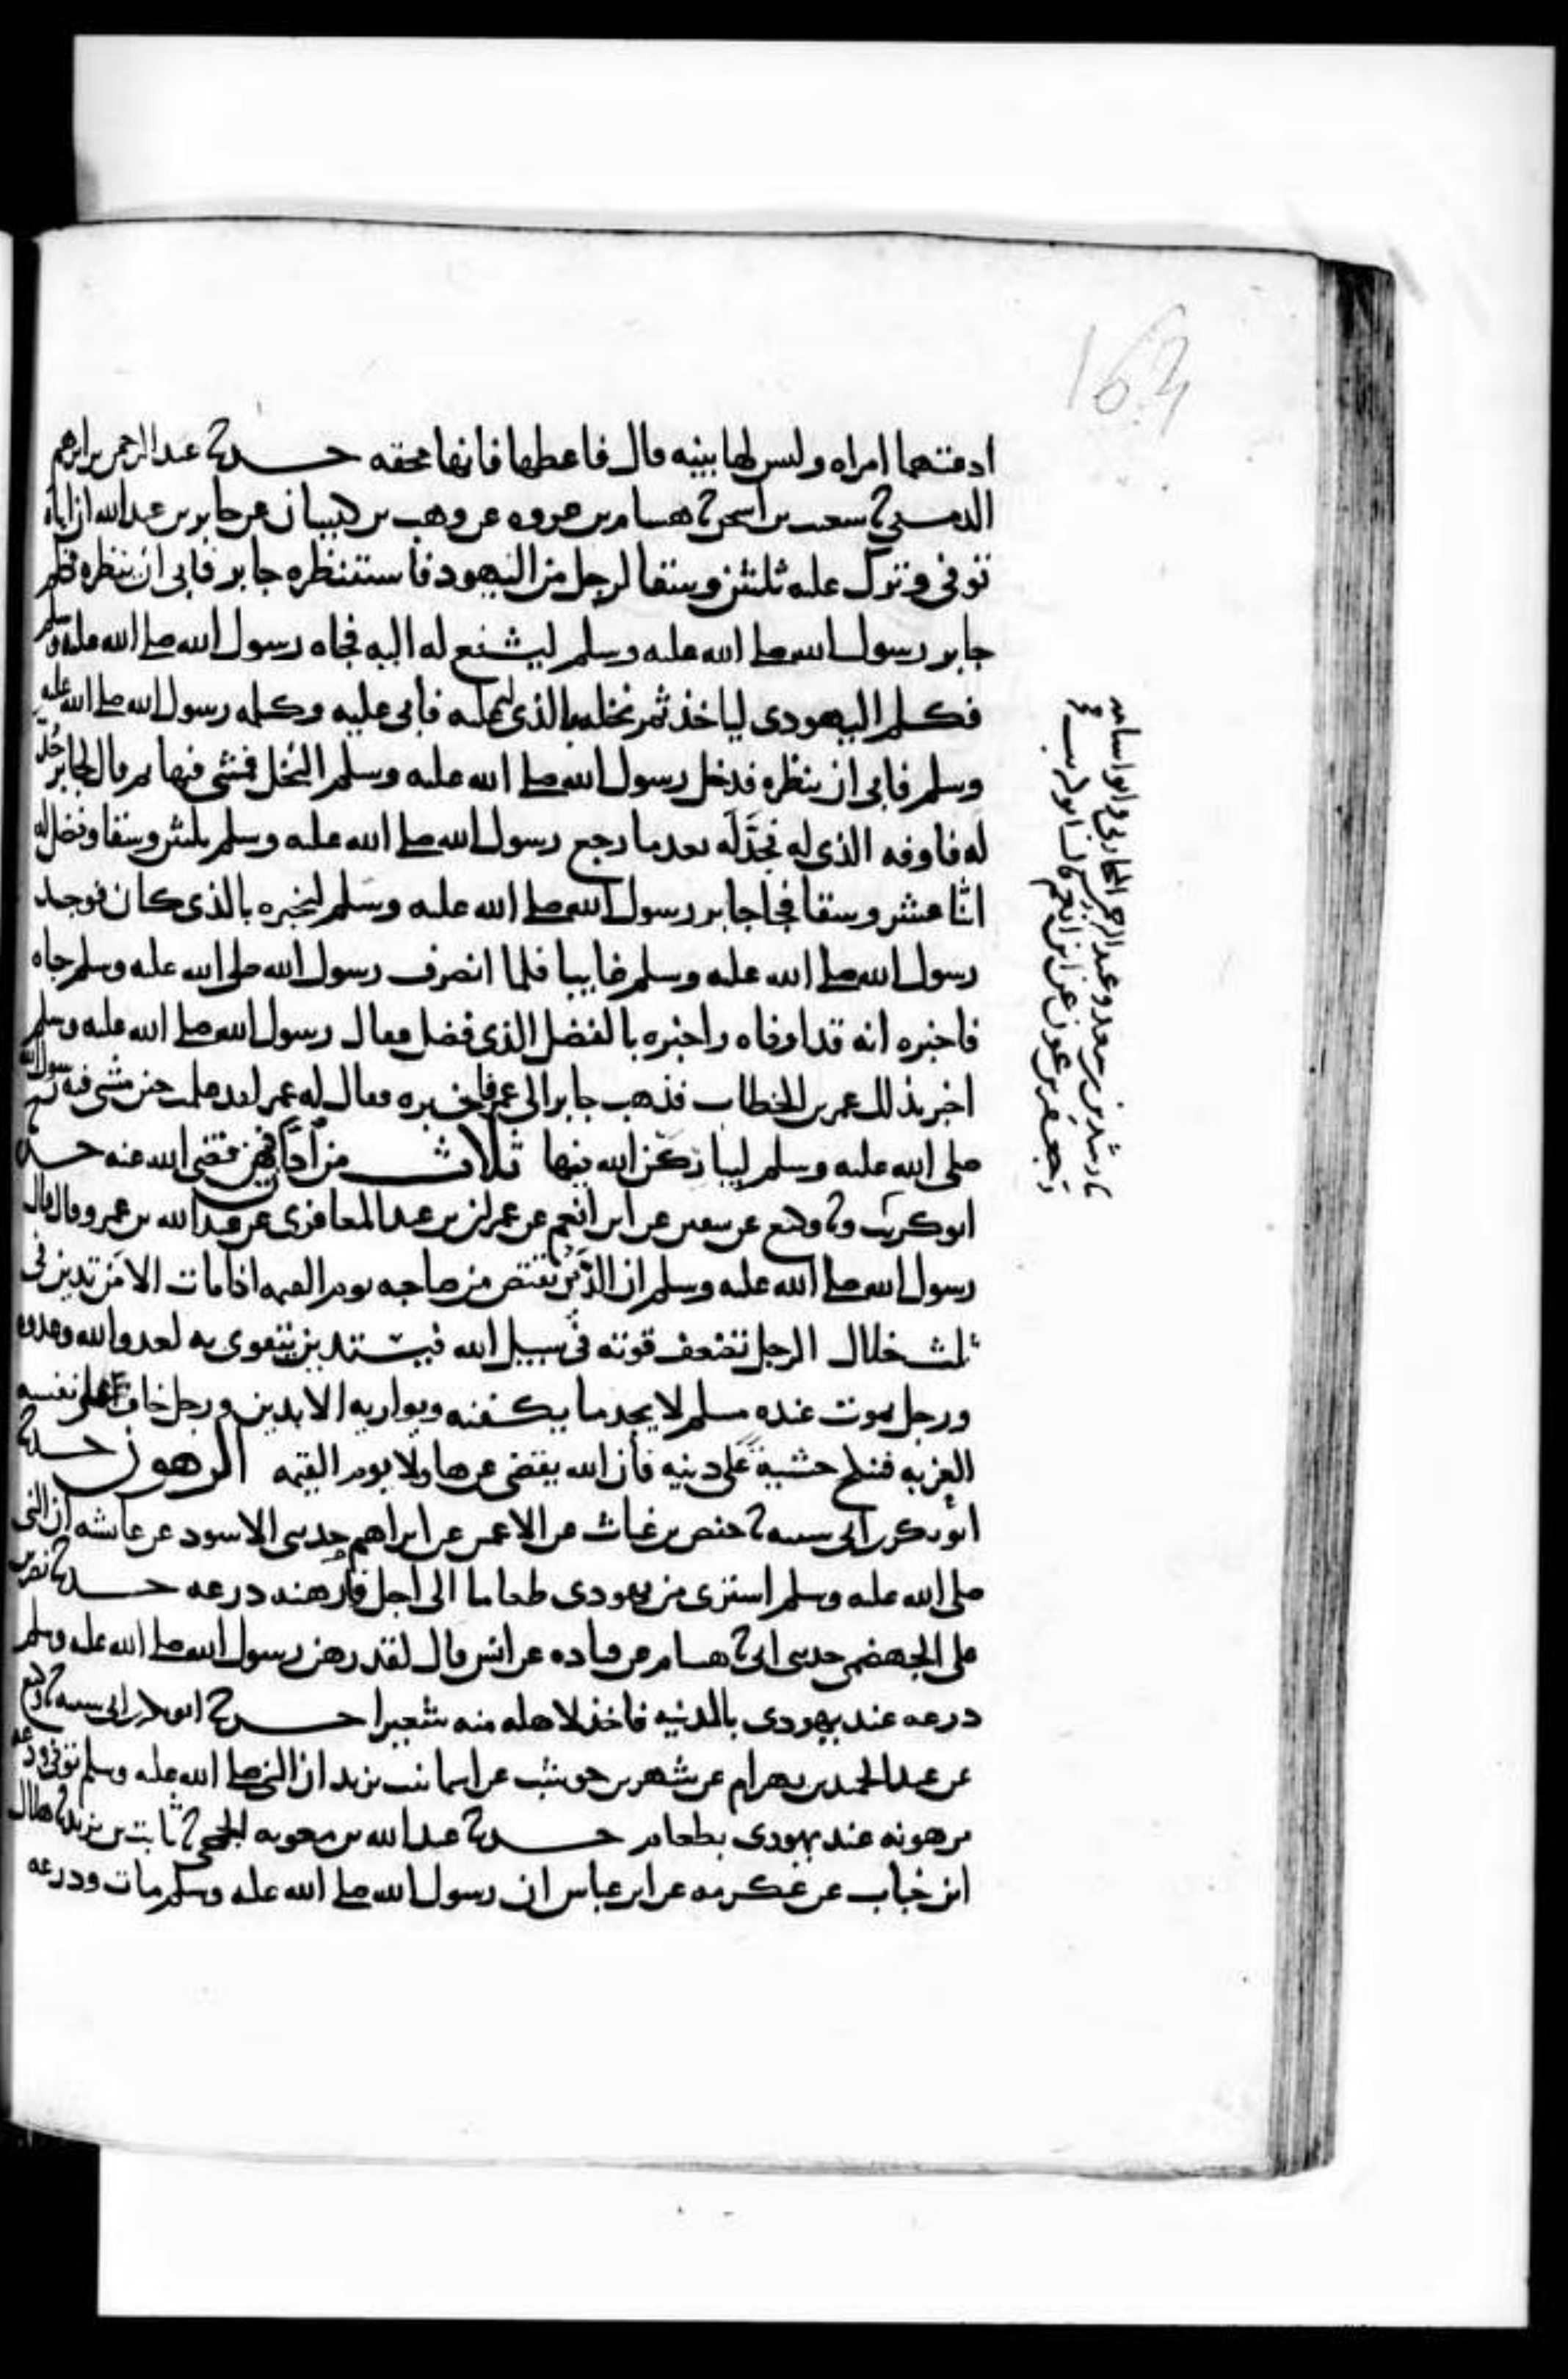 163
ادعتهما امراه وليس لها بينه قال فاعطها فانها محقه حدثنا عبد الرحمن بن ابرهيم
الدمشقي ثنا شعيب بن اسحق ثنا هشام بن عروه عن وهب بن كيسان عن جابر بن عبد الله ان اباه
توفي وترك عليه ثلثين وسقا لرجل من اليهود فاستنظره جابر فابى ان ينظره فكلم
جابر رسول الله صلى الله عليه وسلم ليشفع له اليه فجاه رسول الله صلى الله عليه وسلم
فكلم اليهودي لياخذ ثمر نخله بالذي له عليه فابى عليه وكلمه رسول الله صلى الله عليه
وسلم فابى ان ينظره فدخل رسول الله صلى الله عليه وسلم النخل فمشى فيها ثم قال لجابر جُدّ
له فاوفه الذي له فجَدَّ لَه بعد ما رجع رسول الله صلى الله عليه وسلم ثلثين وسقا وفضل له
اثنا عشر وسقا فجا جابر رسول الله صلى الله عليه وسلم ليخبره بالذي كان فوجد
رسول الله صلى الله عليه وسلم غايبا فلما انصرف رسول الله صلى الله عليه وسلم جاه
فاخبره انه قد اوفاه واخبره بالفضل الذي فضل فقال رسول الله صلى الله عليه وسلم
اخبر بذلك عمر بن الخطاب فذهب جابر الى عمر فاخبره فقال له عمر لقد علمت حين مشى فيه رسول الله
صلى الله عليه وسلم ليباركن الله فيها ثلاث من ادان فيهن قضى الله عنه حدثنا
ابو كريب وثنا وكيع عن سفين عن ابن انعم عن عمران بن عبد المعافري عن عبد الله بن عمرو قال قال
رسول الله صلى الله عليه وسلم ان الدَّين يقتص من صاحبه يوم القيمه اذا مات الا من تدين في
ثلث خلال الرجل تضعف قوته في سبيل الله فيستدين يتقوى به لعدو الله وعدوه
ورجل يموت عنده مسلم لا يجد ما يكفنه ويواريه الا بدين ورجل خاف على نفسه
العزبه فينكح خشية على دينه فان الله يقضي عن هاولا يوم القيمه الرهون حدثنا
ابو بكر بن ابي شيبه ثنا حفص بن غياث عن الاعمش عن ابراهيم حدثني الاسود عن عائشه ان النبي
صلى الله عليه وسلم اشترى من يهودي طعاما الى اجل فارهنه درعه حدثنا نصر بن
علي الجهضمي حدثني ابي ثنا هشام عن قتاده عن انس قال لقد رهن رسول الله صلى الله عليه وسلم
درعه عند يهودي بالمدينه فاخذ لاهله منه شعيرا حدثنا ابو بكر بن ابي شيبه ثنا وكيع
عن عبد الحميد بن بهرام عن شهر بن حوشب عن اسما بنت يزيد ان النبي صلى الله عليه وسلم توفي ودرعه
مرهونه عند يهودي بطعام حدثنا عبد الله بن معويه الجمحي ثنا ثابت بن يزيد ثنا هلال
ابن خباب عن عكرمه عن ابن عباس ان رسول الله صلى الله عليه وسلم مات ودرعه
ثنا رشدين بن سعد وعبد الرحمن المحاربي وابو اسامه
وجعفر بن عون عن ابن انعم قال ابو كريب